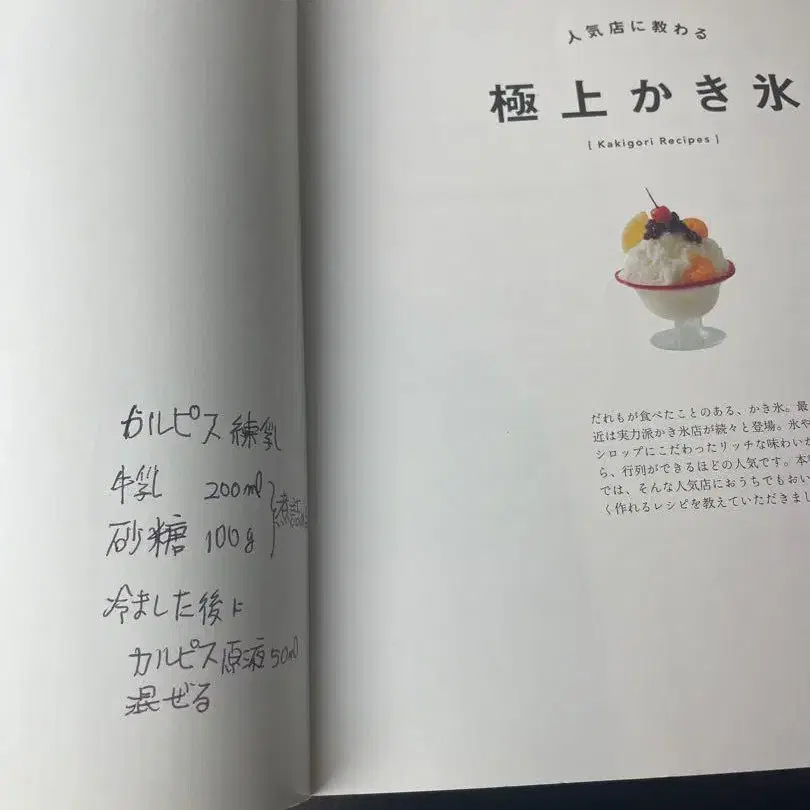 カルピス練乳
牛乳 200ml
砂糖 100g
冷ました後に
カルピス原液50ml
混ぜる
人気店に教わる
極上かき氷
[ Kakigori Recipes ]
だれもが食べたことのある、かき氷。最
近は実力派かき氷店が続々と登場。氷や
シロップにこだわったリッチな味わいか
ら、行列ができるほどの人気です。本
では、そんな人気店におうちでもおい
く作れるレシピを教えていただきまし